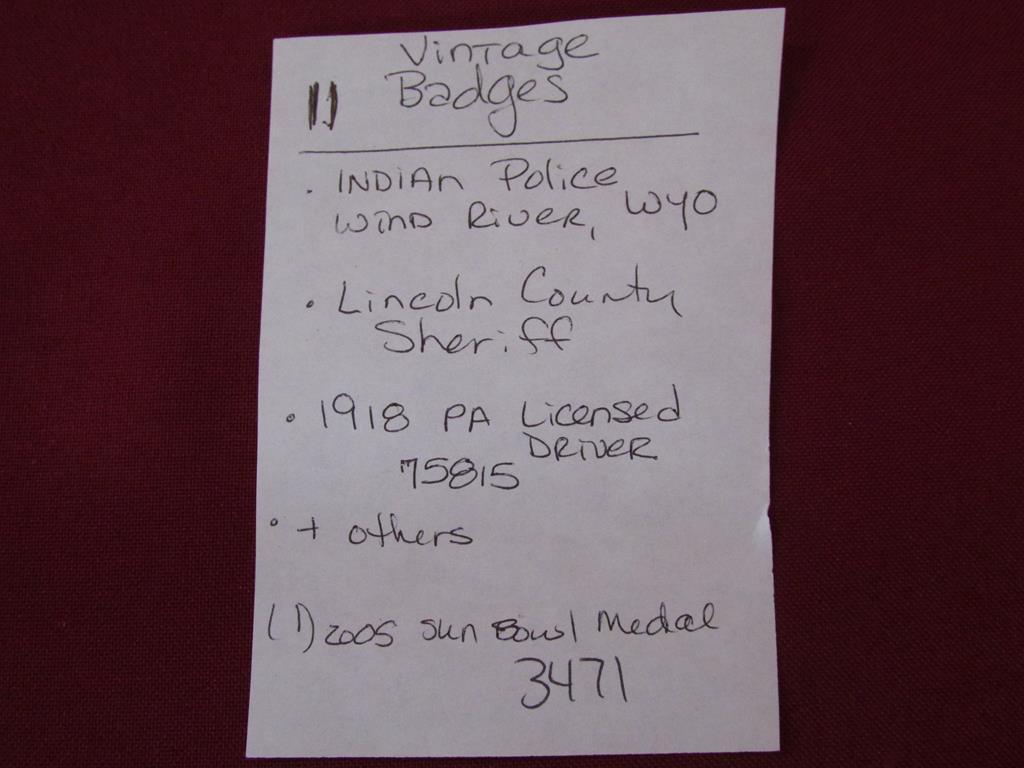 Vintage
11 Badges
. INDIAn Police
WIND RIVER, WYO
. Lincoln County
Sheriff
. 1918 PA Licensed
DRIVER
75815
. + others
(1) 2005 Sun Bowl Medal
3471